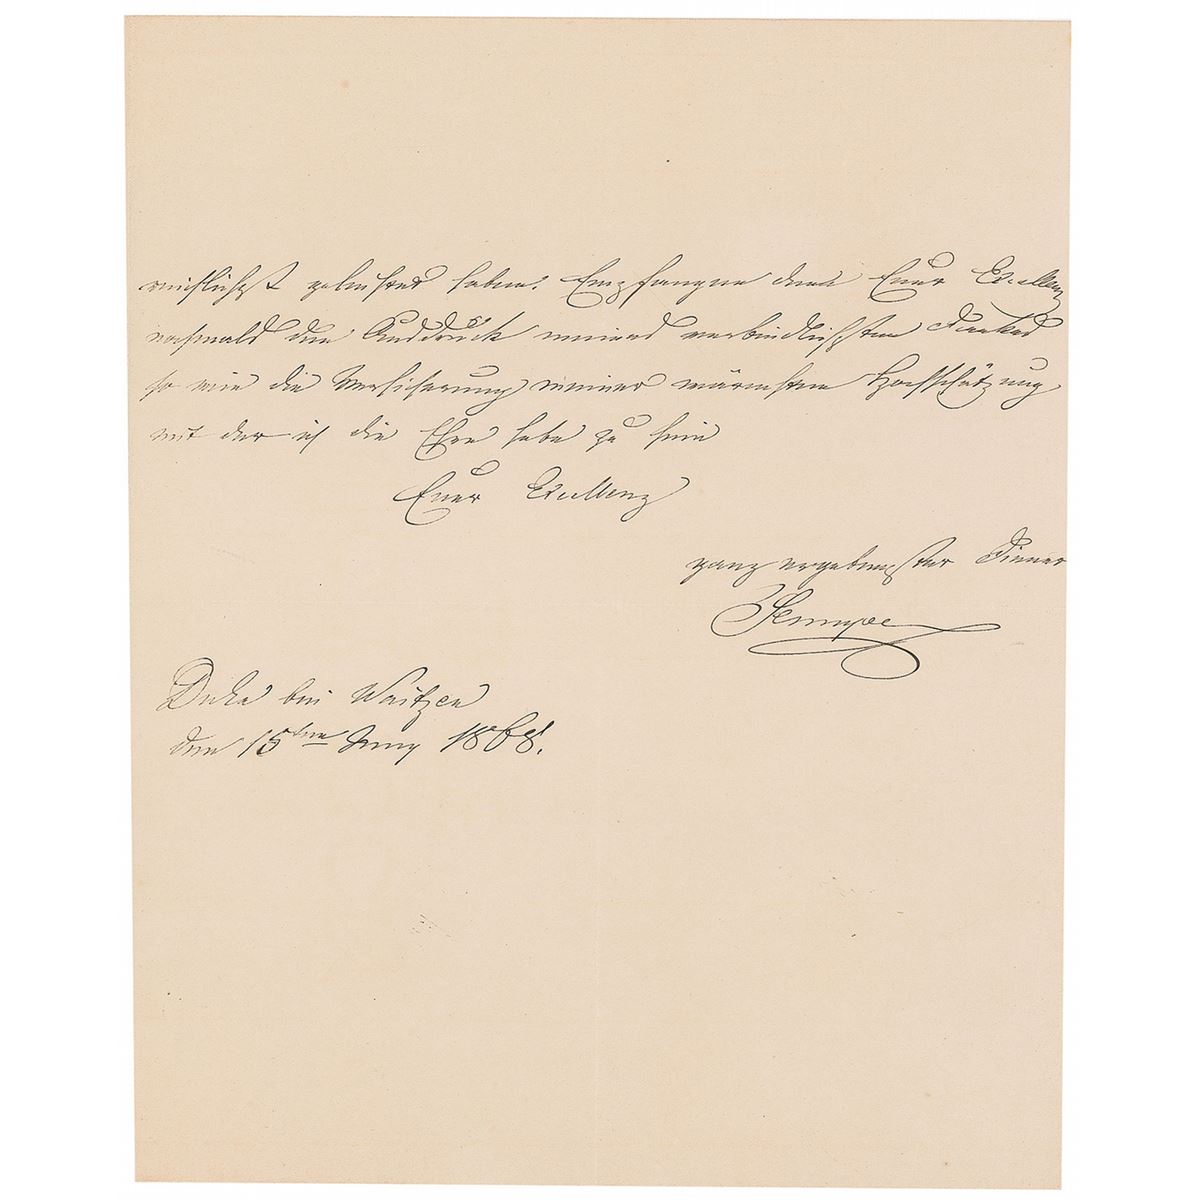 reichlichst gelehret haben. Empfangen dan Euer Excellenz
nochmals den Ausdruck meines verbindlichsten Dankes
so wie die Versicherung meiner wärmsten Hochschätzung
mit der ich die Ehre habe zu sein
Euer Excellenz
ganz ergebenster Diener
Duka bei Waitzen
den 15ten Juny 1868.